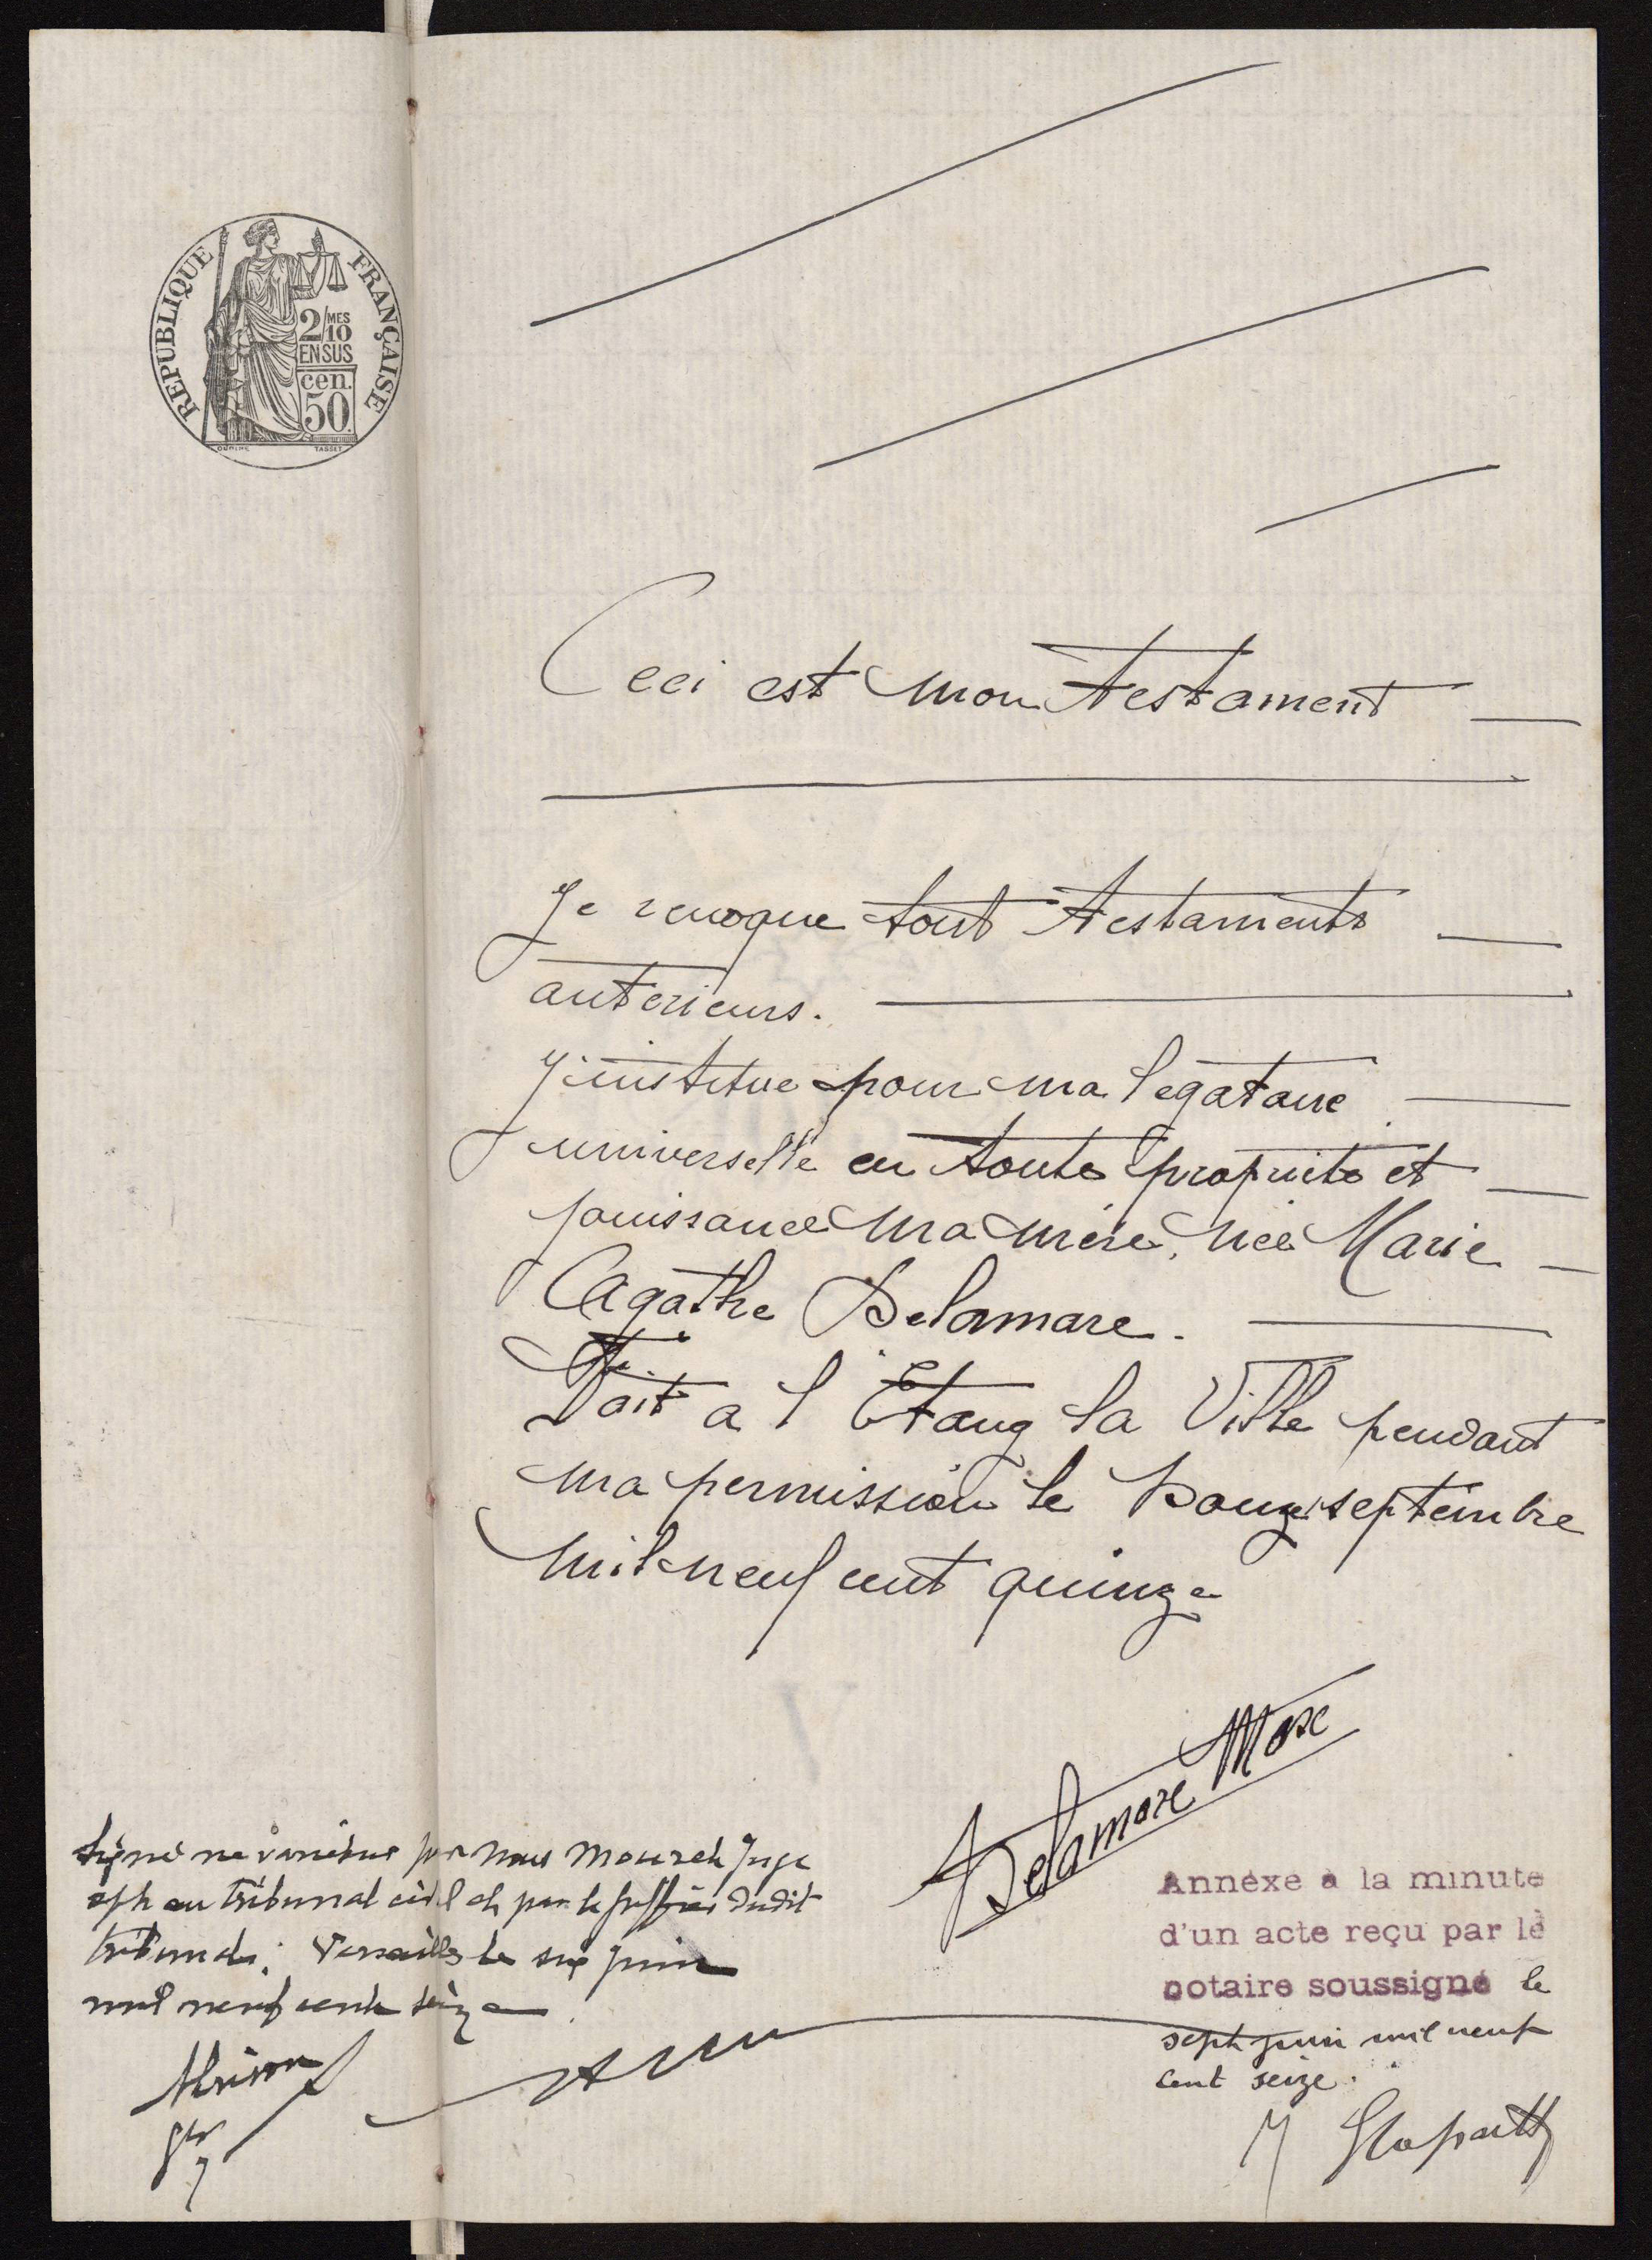 REPUBLIQUE FRANÇAISE
2/10 MES
EN SUS
cen.
50
TASSET
Ceci est mon testament
Je revoque tout testaments
anterieurs.
J'institue pour ma legataire
universelle en toute propriete et
jouissance ma mère, née Marie
Agathe Delamare.
Fait a l'Etang la Ville pendant
ma permission le douze septembre
mil neuf cent quinze
Delamare Marc
Signé ne varietur par nous Mourch Juge
au tribunal civil et par le greffier dudit
tribunal. Versailles le six juin
mil neuf cent seize
Annéxe à la minute
d'un acte reçu par le
notaire soussigné le
sept juin mil neuf
cent seize.